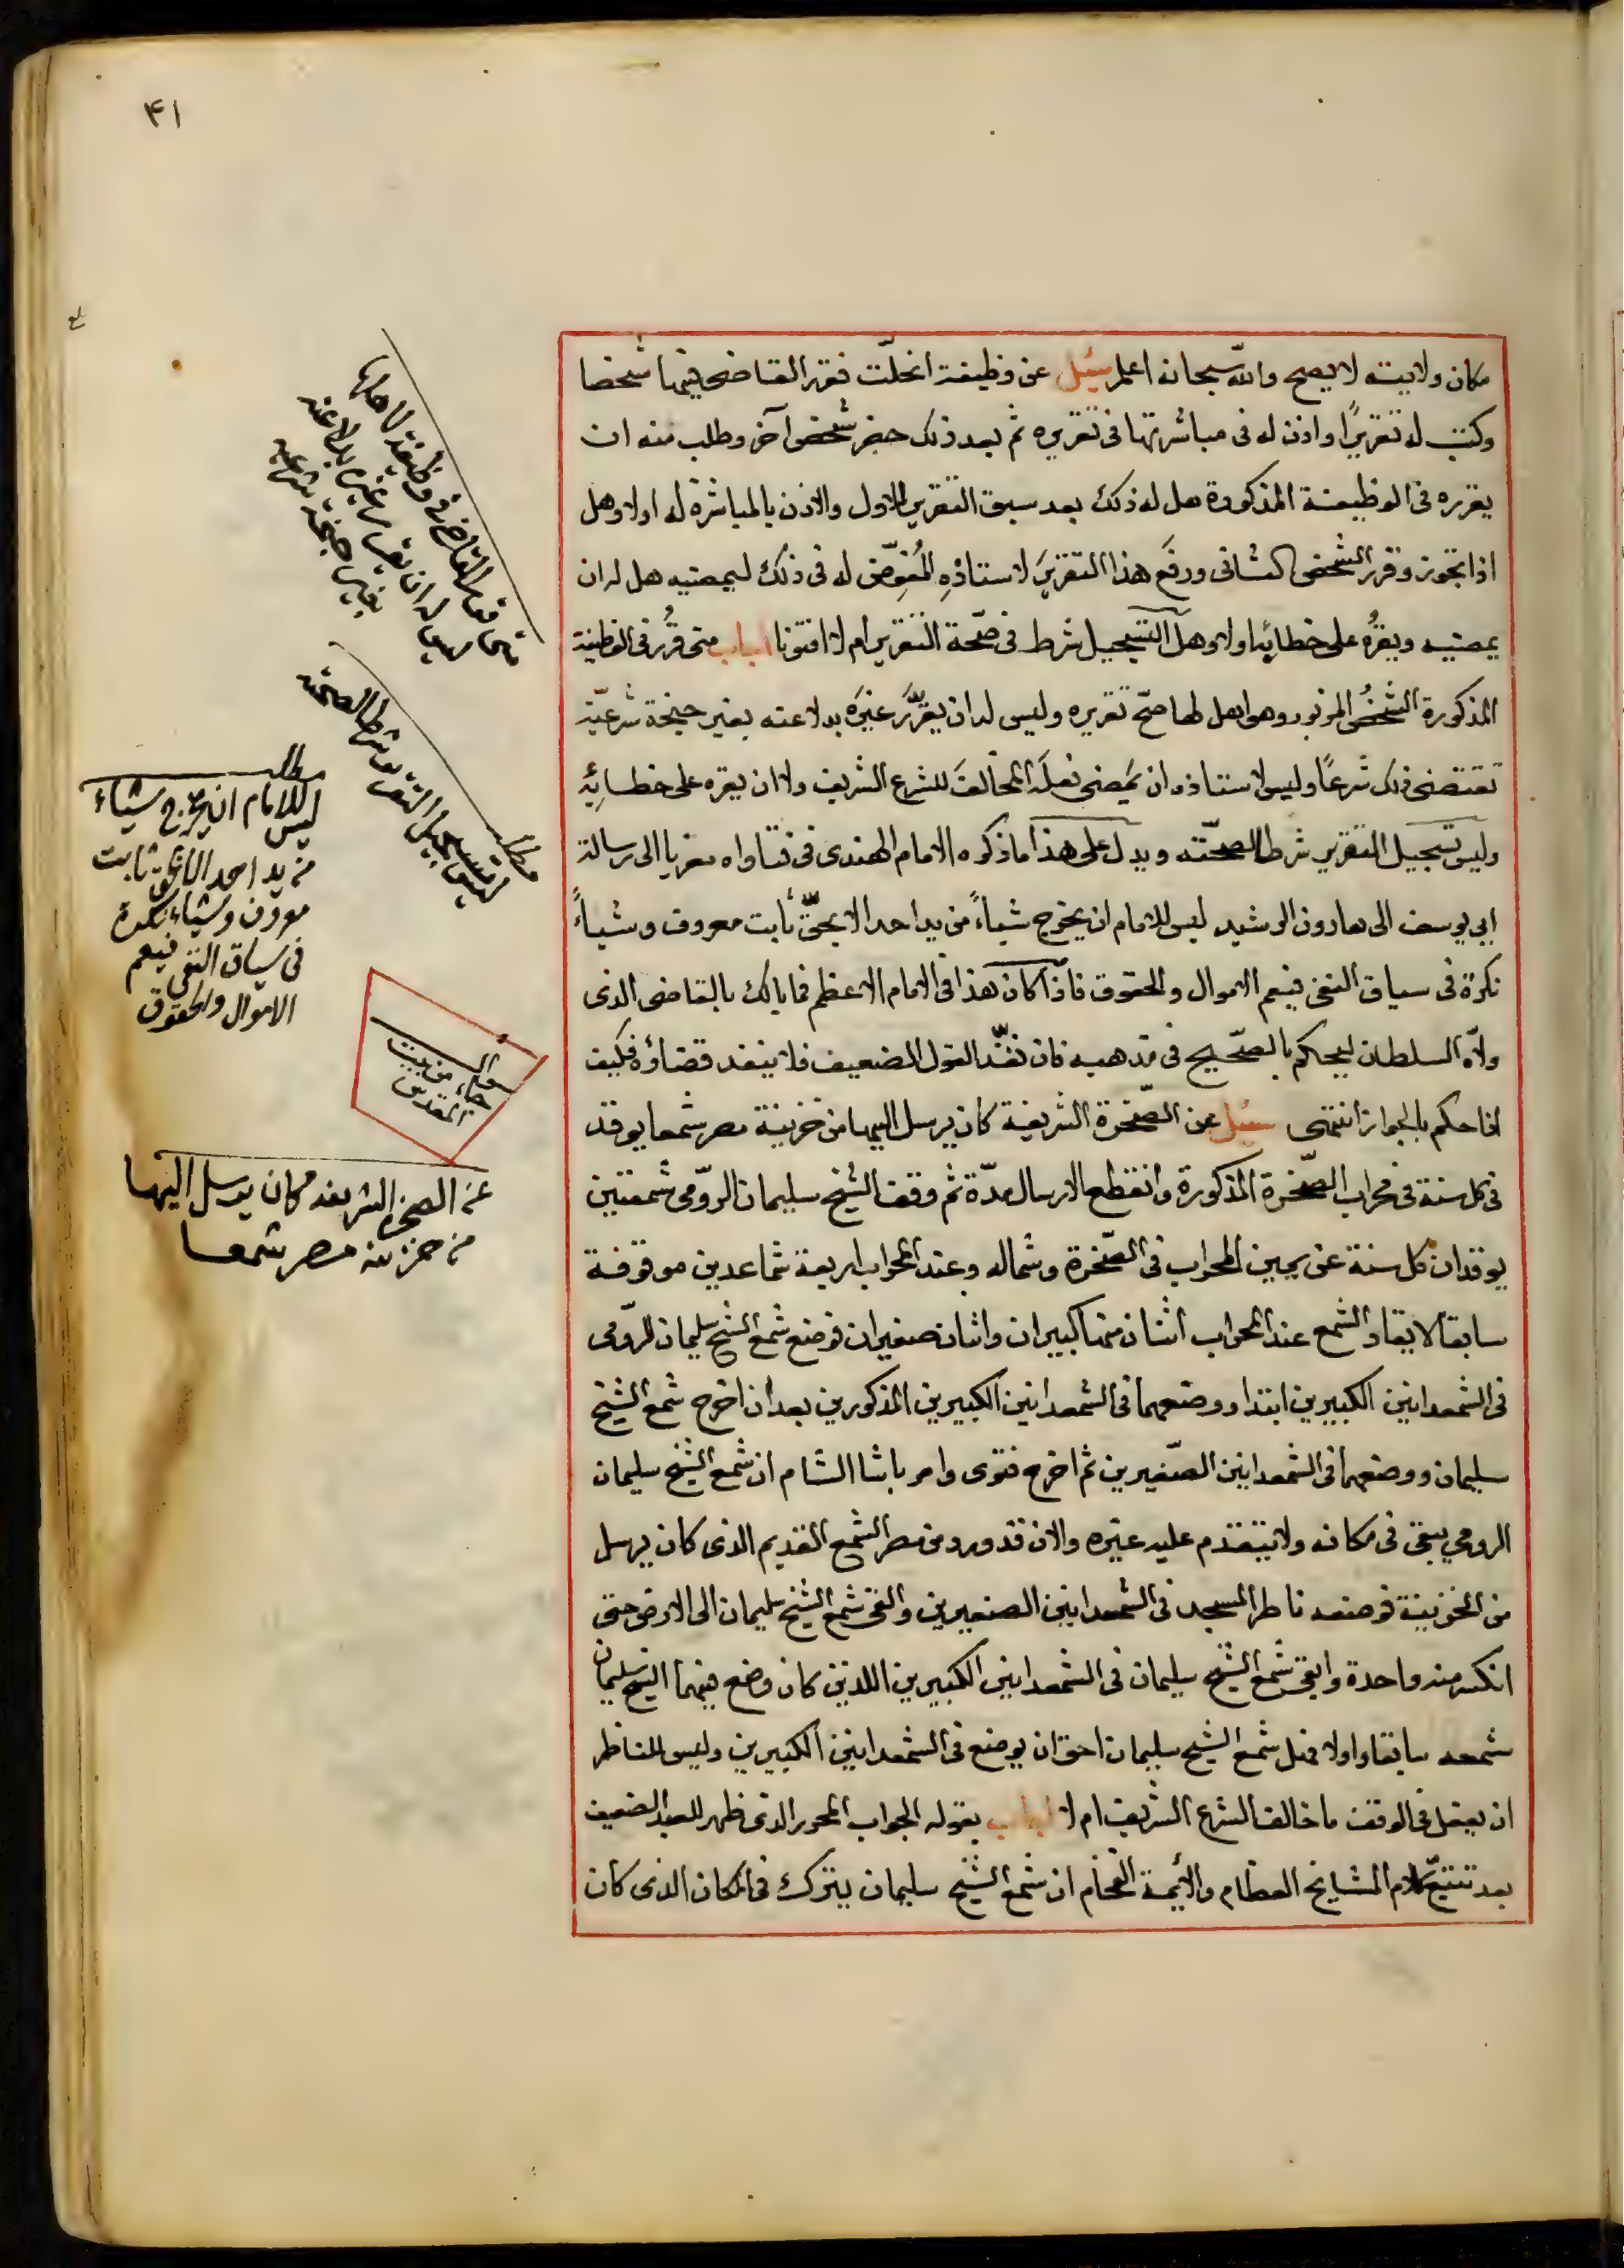 ۴۱
مكان ولايته لا يصح والله سبحانه اعلم سئيل عن وظيفة انحلّت فقرر القاضى فيها شخصا
وكتب له تقريرًا واذن له فى مباشرتها فى تقريره ثم بعد ذلك حضر شخص آخر وطلب منه ان
يقرره فى الوظيفة المذكورة هل له ذلك بعد سبق التقرير للاول والاذن بالمباشرة له اولا وهل
اذا تجوز وقرر الشخص الثانى ورفع هذا التقرير لاستاذه المُفوِّض له فى ذلك ليمضيه هل له ان
يمضيه ويقرُه على خطائه اولا وهل التسجيل شرط فى صّحة التقرير ام لا افتونا اجاب متى قرُر فى الوظيفة
المذكورة الشخصُ المزبور وهو اهل لها صّح تقريره وليس له ان يقرّر غيرَه بدلا عنه بغير جنحة شرعيّة
تقتضى ذلك شرعًا وليس لاستاذه ان يَمضى فعلَه المخالفَ للشرع الشريف ولا ان يقره على خطائِهِ
وليس تسجيل التقرير شرطا لصحّته ويدل على هذا ما ذكره الامام الهندى فى فتاواه معزيا الى رسالة
ابى يوسف الى هارون الرشيد ليس للامام ان يخرج شياءً من يد احد الا بحقّ ثابت معروف وشياءً
نكرة فى سياق النفى فيعم الاموال والحقوق فاذا كان هذا فى الامام الاعظم فما بالك بالقاضى الذى
ولّاه السلطان ليحكم بالصّحيح فى مذهبه فان نفّذ القول الضعيف فلا ينفذ قضاؤه فكيف
اذا حكم بالجواز انتهى سئيل عن الصّخرة الشريفة كان يرسل اليها من خزينة مصر شمعا يوقد
فى كل سنة فى محراب الصّخرة المذكورة وانقطع الارسال مدّة ثم وقف الشيخ سليمان الرّومى شمعتين
يوقدان كل سنة عن يمين المحراب فى الصّخرة وشماله وعند المحراب اربعة شماعدين موقوفة
سابقا لايقاد الشمع عند المحراب اثنان منها كبيران واثنان صغيران فوضع شمع الشيخ سليمان الرّومى
فى الشمعدانين الكبيرين ابتدا ووضعهما فى الشمعدانين الكبيرين المذكورين بعد ان اخرج شمع الشيخ
سليمان ووضعهما فى الشمعدانين الصّغيرين ثم اخرج فتوى وامر باشا الشام ان شمع الشيخ سليمان
الرومي يبقى فى مكانه ولا يتقدم عليه غيره والان قد ورد من مصر الشمع القديم الذى كان يرسل
من الخزينة فوضعه ناظر المسجد فى الشمعدانين الصغيرين والقى شمع الشيخ سليمان الى الارض حتى
انكسر منه واحدة وابقى شمع الشيخ سليمان فى الشمعدانين الكبيرين اللذين كان وضع فيهما الشيخ سليمان
شمعه سابقا واولا فهل شمع الشيخ سليمان احق ان يوضع فى الشمعدانين الكبيرين وليس للناظر
ان يعمل فى الوقف ما خالف الشرع الشريف ام لا اجاب بقوله الجواب المحرر الذى ظهر للعبد الضعيف
بعد تتبّع كلام المشايخ العظام والأئمة الفخام ان شمع الشيخ سليمان يترك فى المكان الذى كان
متى قرر القاضى فى وظيفة لاهلها
ليس له ان يقرر غيره بدلا عنه
بغير جنحة شرعية
مطلب
ليس تسجيل التقرير شرطا لصحته
مطلب
ليس للامام ان يخرج شياء
من يد احد الا بحق ثابت
معروف وشياء نكرة
فى سياق النفى فيعم
الاموال والحقوق
سوال
جاء من بيت
المقدس
عن الصخرة الشريفة كان يرسل اليها
من خزينة مصر شمعا